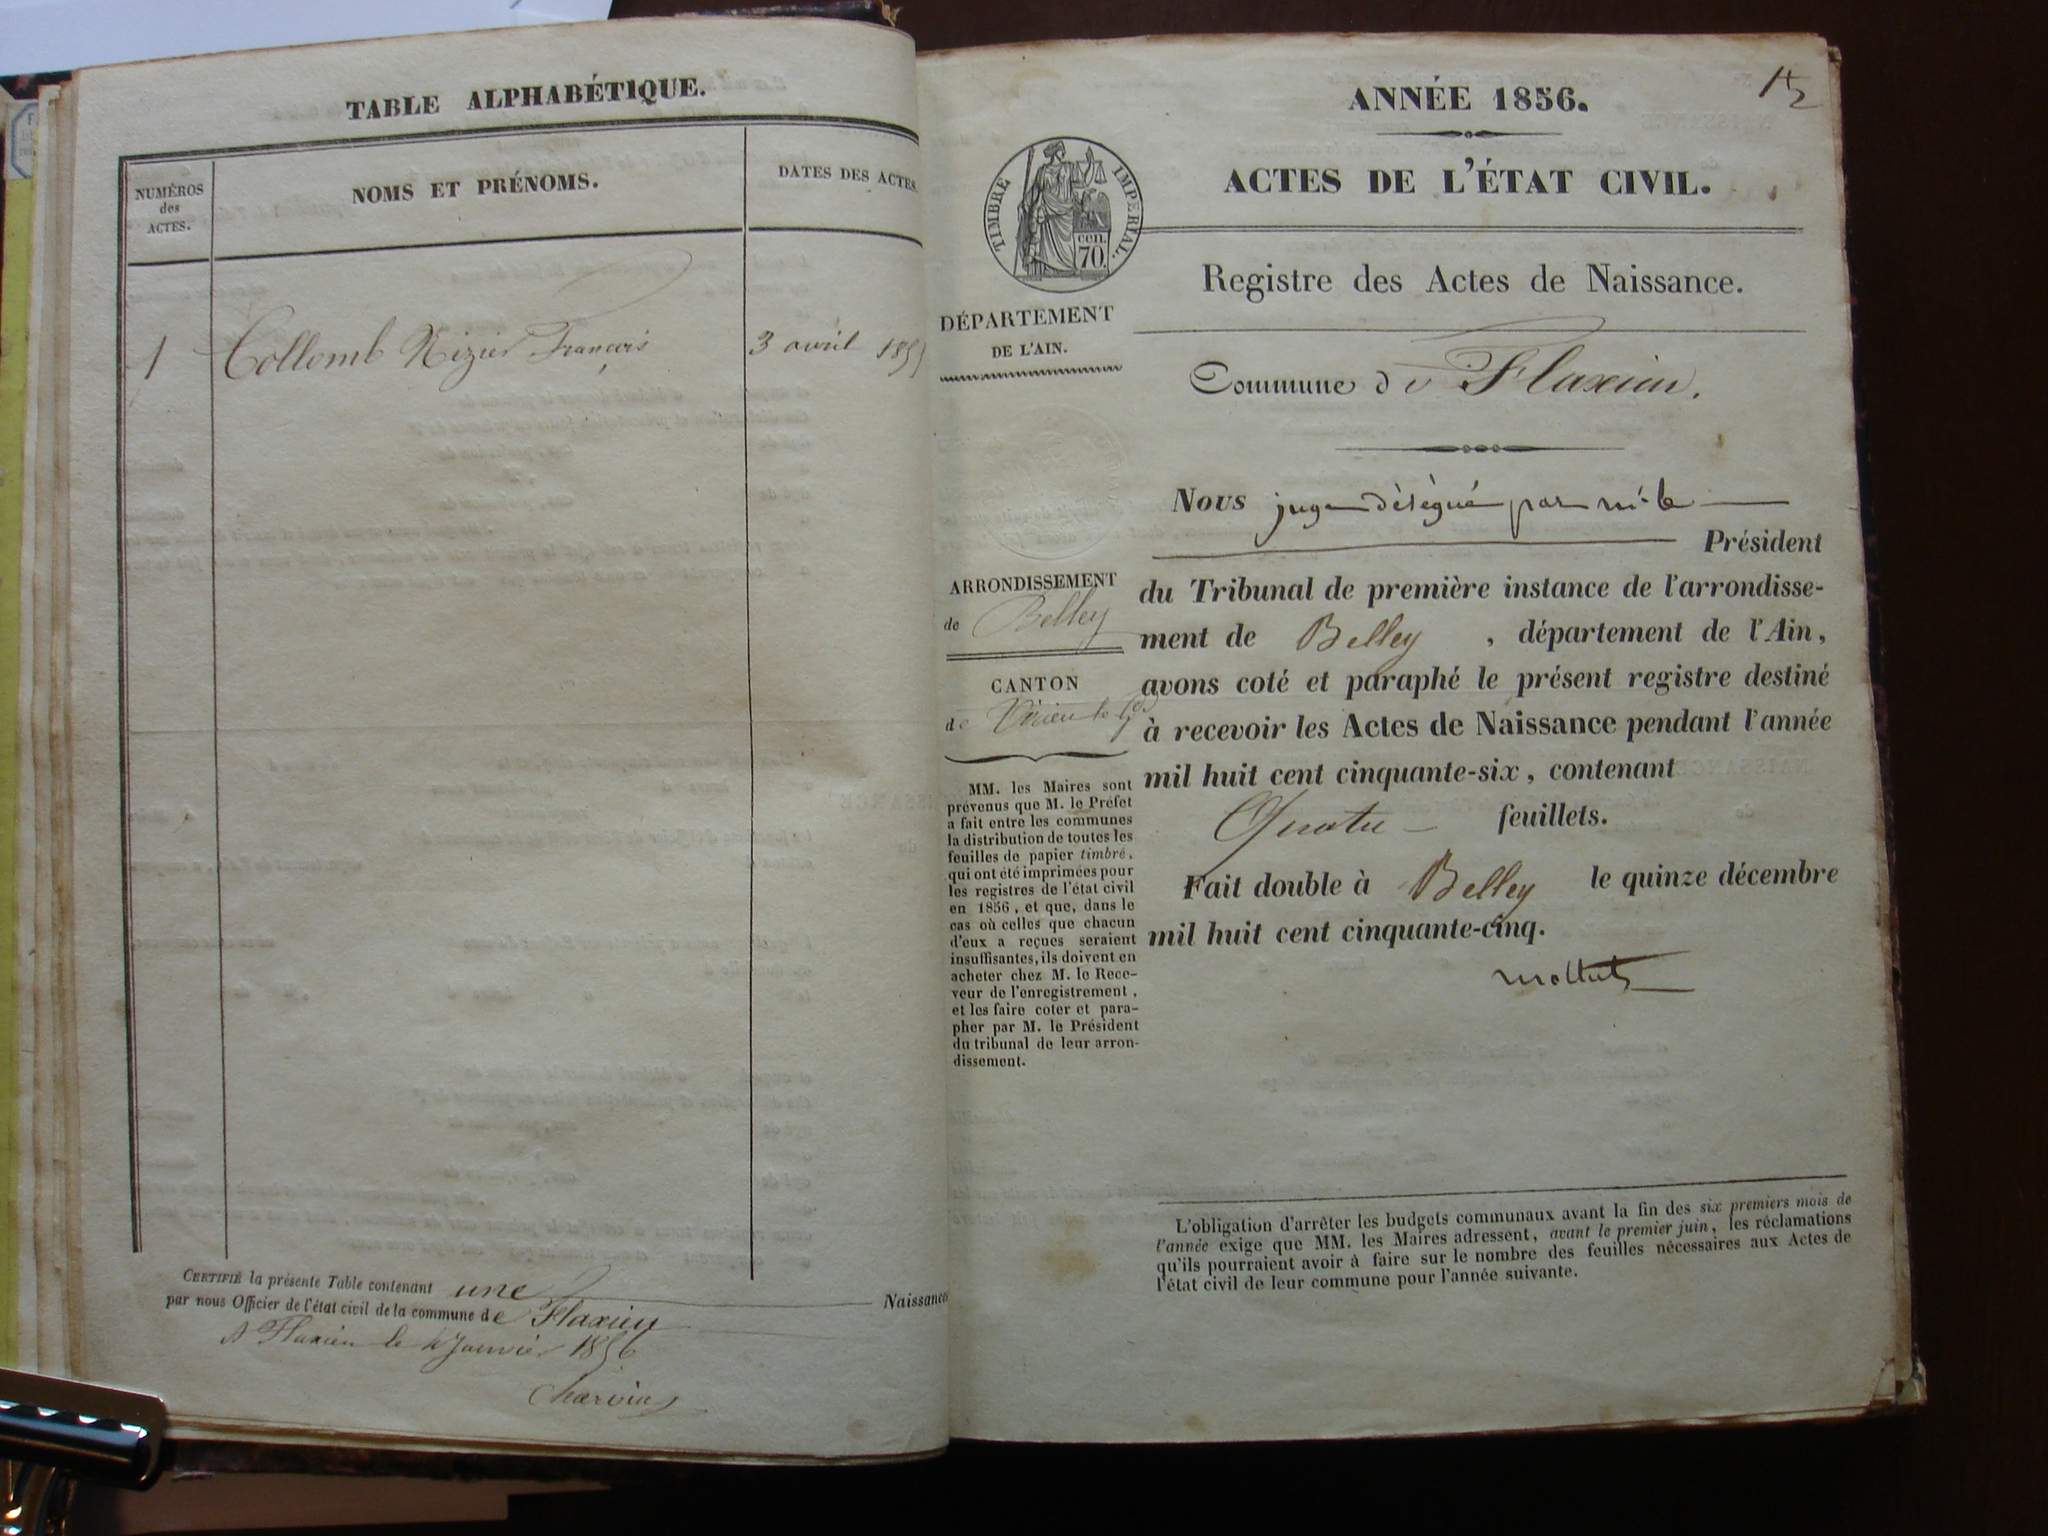 TABLE ALPHABÉTIQUE.
NUMÉROS
des
ACTES.
NOMS ET PRÉNOMS.
DATES DES ACTES
1 Collomb Nizier François 3 avril 1855
CERTIFIÉ la présente Table contenant une Naissance
par nous Officier de l'état civil de la commune de Flaxieu
A Flaxieu le 4 Janvier 1856
Charvin
15
ANNÉE 1856.
ACTES DE L'ÉTAT CIVIL.
TIMBRE IMPERIAL.
cen.
70.
Registre des Actes de Naissance.
DÉPARTEMENT
DE L'AIN.
Commune de Flaxieu.
Nous juge délégué par mr le
Président
ARRONDISSEMENT
de Belley
CANTON
de Virieu le Gd
du Tribunal de première instance de l'arrondisse-
ment de Belley , département de l'Ain,
avons coté et paraphé le présent registre destiné
à recevoir les Actes de Naissance pendant l'année
mil huit cent cinquante-six, contenant
Quatre feuillets.
Fait double à Belley le quinze décembre
mil huit cent cinquante-cinq.
MM. les Maires sont
prévenus que M. le Préfet
a fait entre les communes
la distribution de toutes les
feuilles de papier timbré,
qui ont été imprimées pour
les registres de l'état civil
en 1856, et que, dans le
cas où celles que chacun
d'eux a reçues seraient
insuffisantes, ils doivent en
acheter chez M. le Rece-
veur de l'enregistrement,
et les faire coter et para-
pher par M. le Président
du tribunal de leur arron-
dissement.
L'obligation d'arrêter les budgets communaux avant la fin des six premiers mois de
l'année exige que MM. les Maires adressent, avant le premier juin, les réclamations
qu'ils pourraient avoir à faire sur le nombre des feuilles nécessaires aux Actes de
l'état civil de leur commune pour l'année suivante.